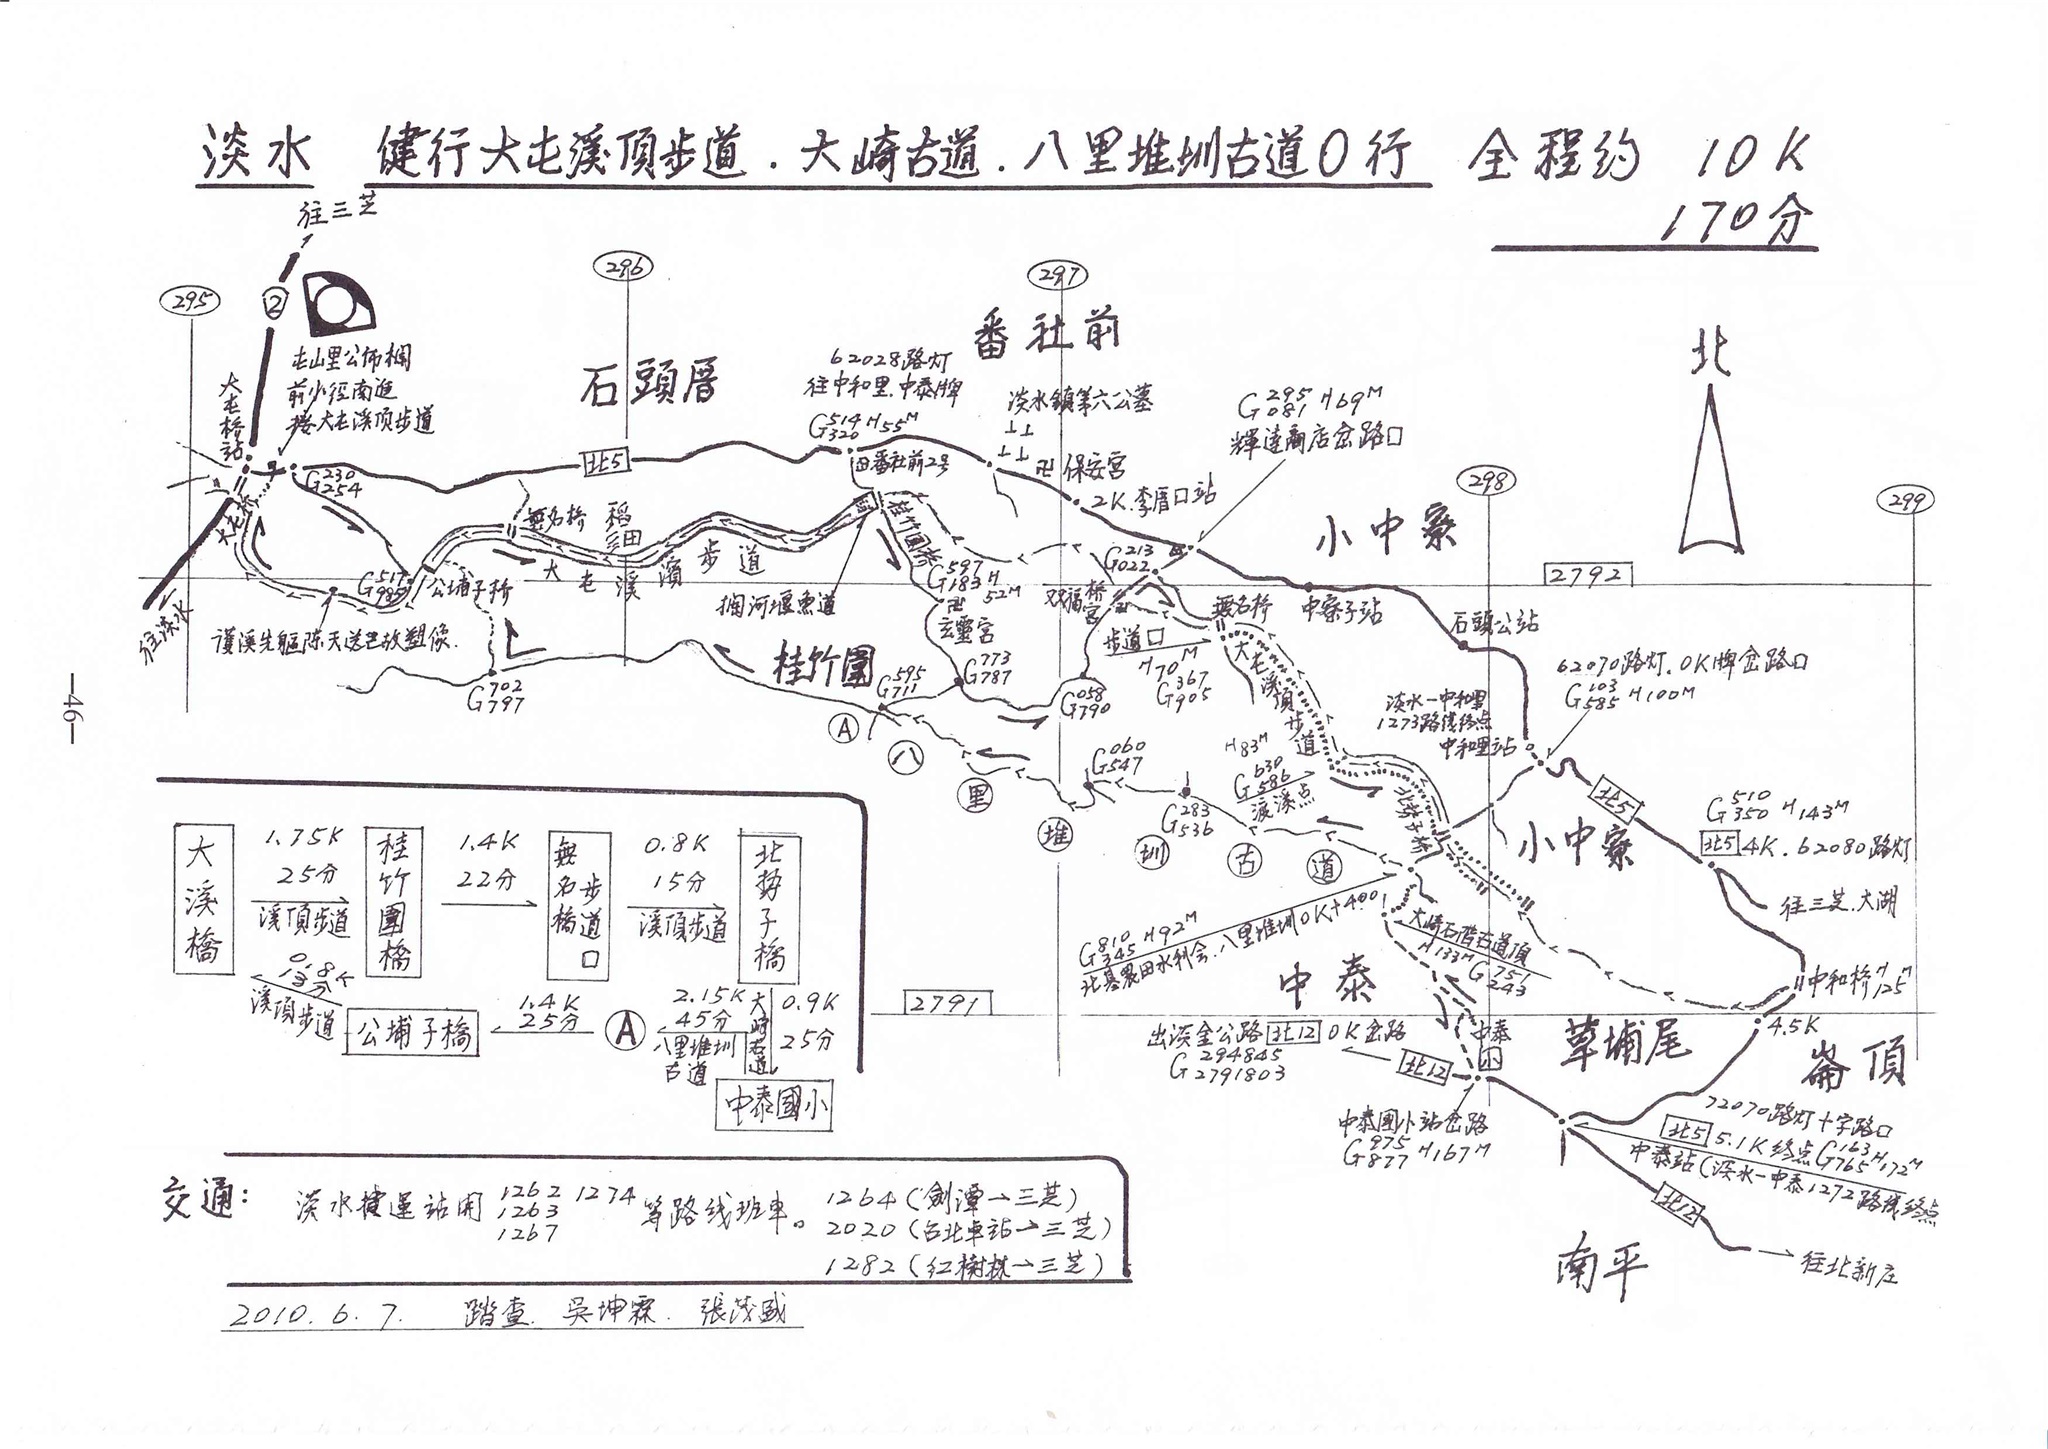 淡水 健行大屯溪頂步道.大崎古道.八里堆圳古道O行 全程約 10K
170分
往三芝
295
②
296
297
298
299
北
屯山里公佈欄
前小徑南進
接大屯溪頂步道
大屯橋站
石頭厝
番社前
62028路灯
往中和里.中泰牌
G 514 320 H55M
淡水鎮第六公墓
G 295 081 H69M
輝達商店岔路口
北5
田番社前2号
卍 保安宮
2K.李厝口站
小中寮
G 230 254
大屯橋
無名橋
稻田
大屯溪濱步道
桂竹圍橋
G 597 183 H 52M
卍
玄靈宮
G 213 022
双福橋
宮
無名橋
步道口
中寮子站
2792
石頭公站
往淡水
公埔子橋
攔河堰魚道
護溪先驅陳天送巳故塑像.
桂竹圍
G 702 797
G 595 711
G 773 787
G 058 790
H70M
G 367 905
大屯溪頂步道
62070路灯.0K牌岔路口
G 103 585 H100M
淡水一中和里
1273路線終点
中和里站
A
八里堆圳古道
G 060 547
G 283 536
H83M
G 630 586
渡溪点
北勢子橋
北5
小中寮
G 510 350 H143M
北5 4K.62080路灯
往三芝.大湖
G 810 345 H92M
北基農田水利会.八里堆圳0K+400
大崎石階古道頂
H133M G 751 243
中和橋 H 125M
4.5K
中泰
草埔尾
崙頂
2791
出淡金公路 北12 0K岔路
G 294845
G 2791803
北12
中泰
小
中泰國小站岔路
G 975 877 H167M
72070路灯十字路口
北5 5.1K終点G 163 765 H172M
中泰站(淡水一中泰1272路線終点
北12
往北新庄
南平
大溪橋
1.75K
25分
溪頂步道
桂竹圍橋
1.4K
22分
無名橋 步道口
0.8K
15分
溪頂步道
北勢子橋
溪頂步道
公埔子橋
1.4K
25分
A
2.15K
45分
八里堆圳
古道
大崎古道
0.9K
25分
中泰國小
交通: 淡水捷運站開 1262 1274 等路线班車。 1264(劍潭→三芝)
1263
1267
2020(台北車站→三芝)
1282(紅樹林→三芝)
2010.6.7. 踏查.吳坤霖.張茂盛
—46—